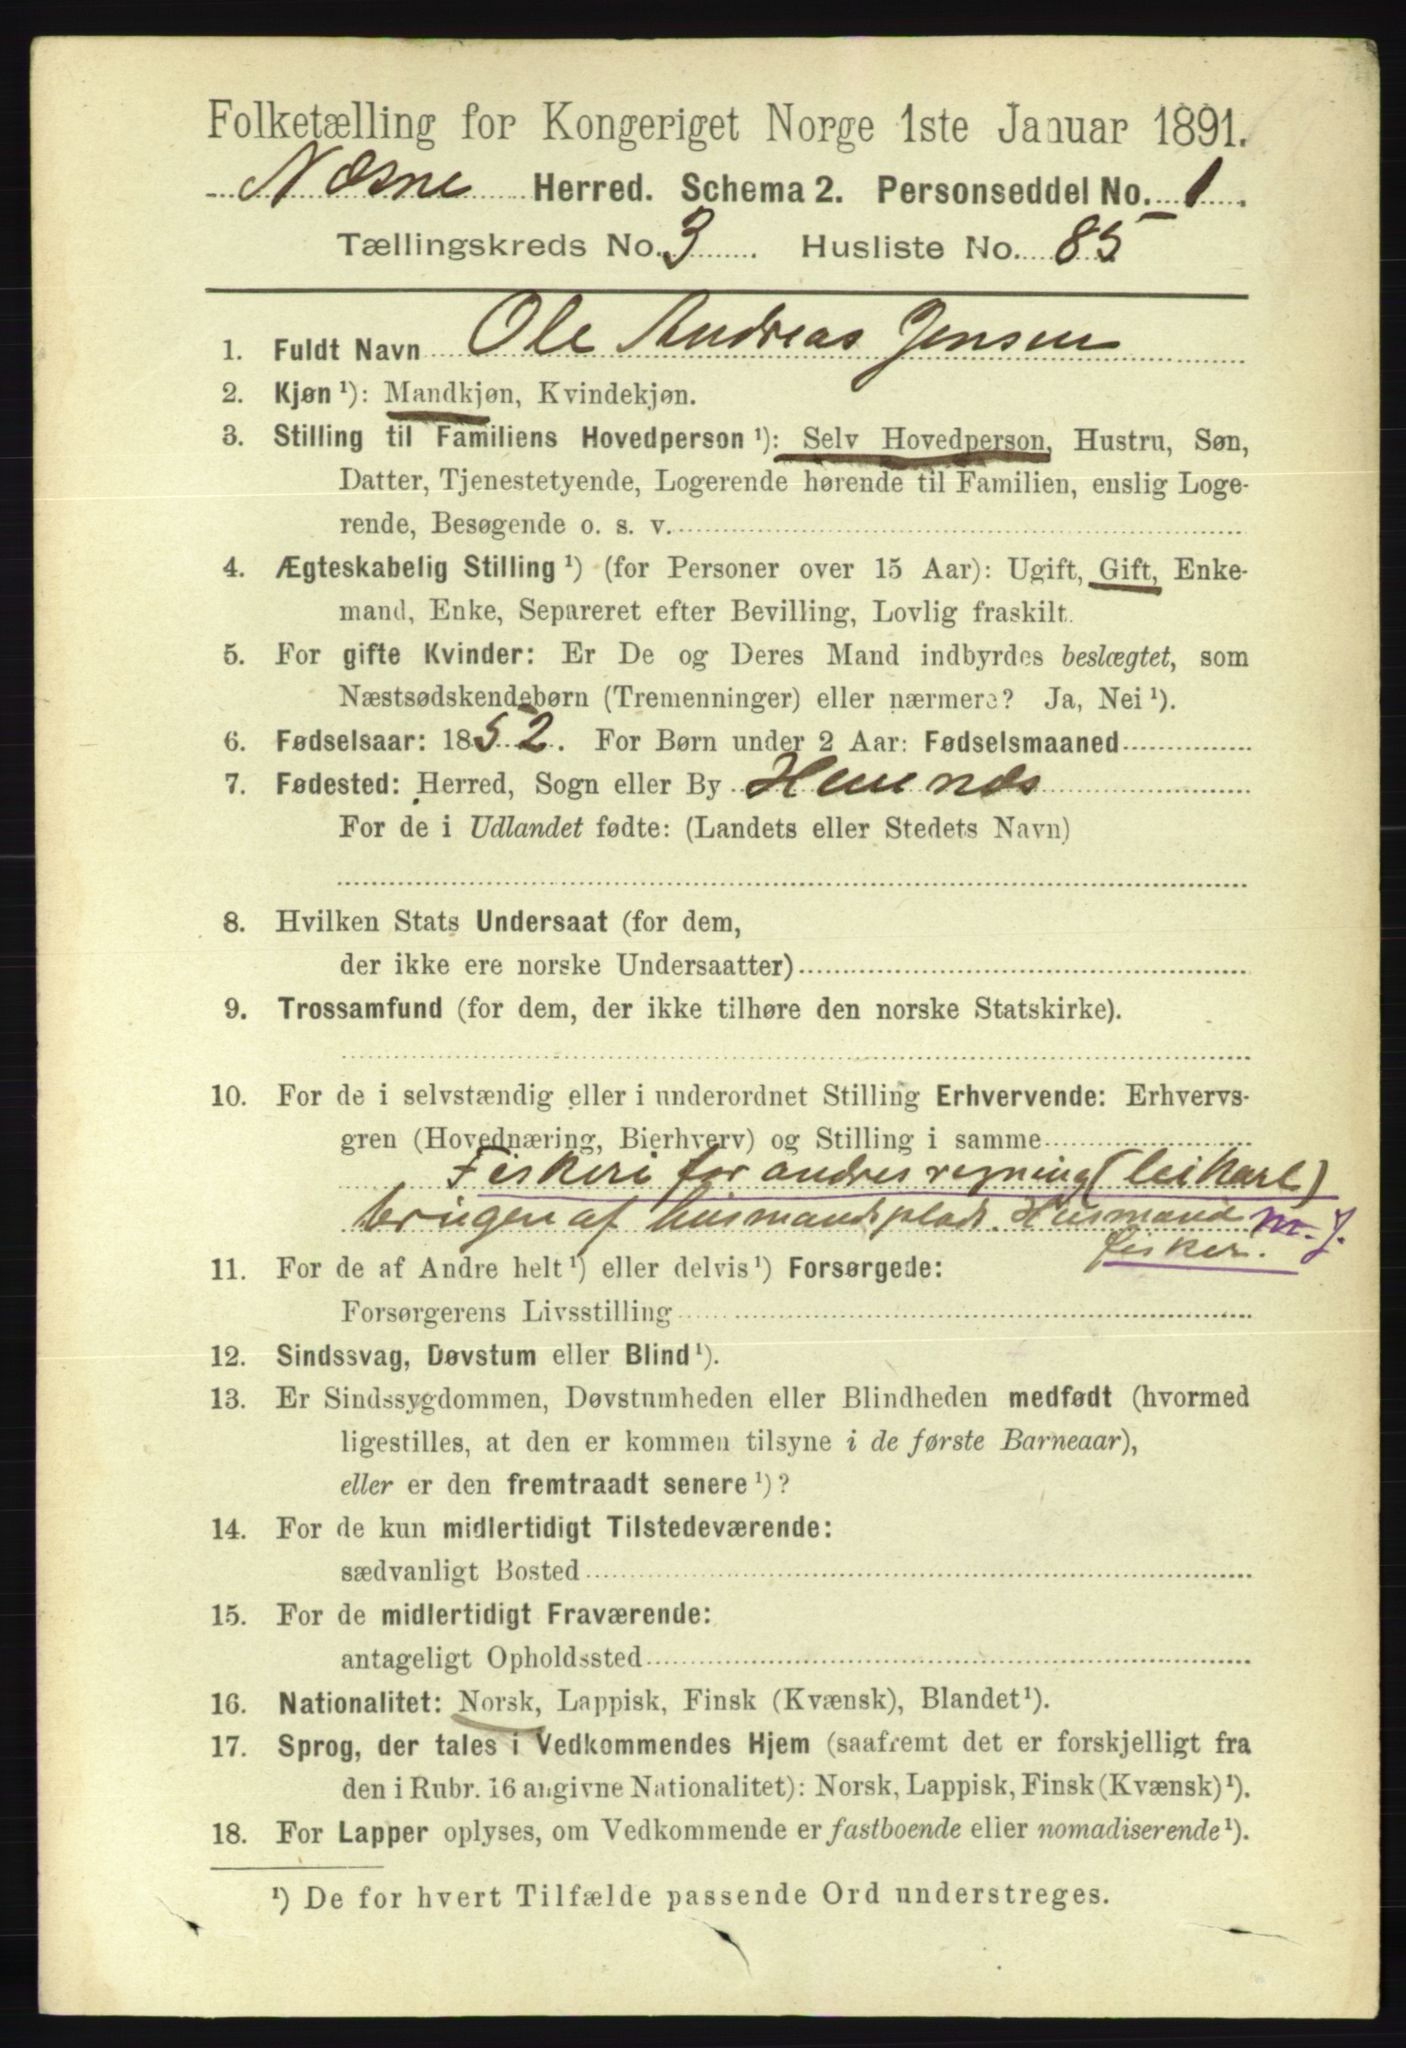 Folketælling for Kongeriget Norge 1ste Januar 1891.
Næsne Herred. Schema 2. Personseddel No. 1.
Tællingskreds No. 3. Husliste No. 85
1. Fuldt Navn Ole Andreas Jensen
2. Kjøn ¹): Mandkjøn, Kvindekjøn.
3. Stilling til Familiens Hovedperson ¹): Selv Hovedperson, Hustru, Søn,
Datter, Tjenestetyende, Logerende hørende til Familien, enslig Loge-
rende, Besøgende o. s. v.
4. Ægteskabelig Stilling ¹) (for Personer over 15 Aar): Ugift, Gift, Enke-
mand, Enke, Separeret efter Bevilling, Lovlig fraskilt.
5. For gifte Kvinder: Er De og Deres Mand indbyrdes beslægtet, som
Næstsødskendebørn (Tremenninger) eller nærmere? Ja, Nei ¹).
6. Fødselsaar: 1852. For Børn under 2 Aar: Fødselsmaaned
7. Fødested: Herred, Sogn eller By Hemnæs
For de i Udlandet fødte: (Landets eller Stedets Navn)
8. Hvilken Stats Undersaat (for dem,
der ikke ere norske Undersaatter)
9. Trossamfund (for dem, der ikke tilhøre den norske Statskirke).
10. For de i selvstændig eller i underordnet Stilling Erhvervende: Erhvervs-
gren (Hovednæring, Bierhverv) og Stilling i samme
Fiskeri for andres regning (leikarl)
brugen af husmandsplads. Husmand m. J.
fisker.
11. For de af Andre helt ¹) eller delvis ¹) Forsørgede:
Forsørgerens Livsstilling
12. Sindssvag, Døvstum eller Blind ¹).
13. Er Sindssygdommen, Døvstumheden eller Blindheden medfødt (hvormed
ligestilles, at den er kommen tilsyne i de første Barneaar),
eller er den fremtraadt senere ¹)?
14. For de kun midlertidigt Tilstedeværende:
sædvanligt Bosted
15. For de midlertidigt Fraværende:
antageligt Opholdssted
16. Nationalitet: Norsk, Lappisk, Finsk (Kvænsk), Blandet ¹).
17. Sprog, der tales i Vedkommendes Hjem (saafremt det er forskjelligt fra
den i Rubr. 16 angivne Nationalitet): Norsk, Lappisk, Finsk (Kvænsk) ¹).
18. For Lapper oplyses, om Vedkommende er fastboende eller nomadiserende ¹).
¹) De for hvert Tilfælde passende Ord understreges.